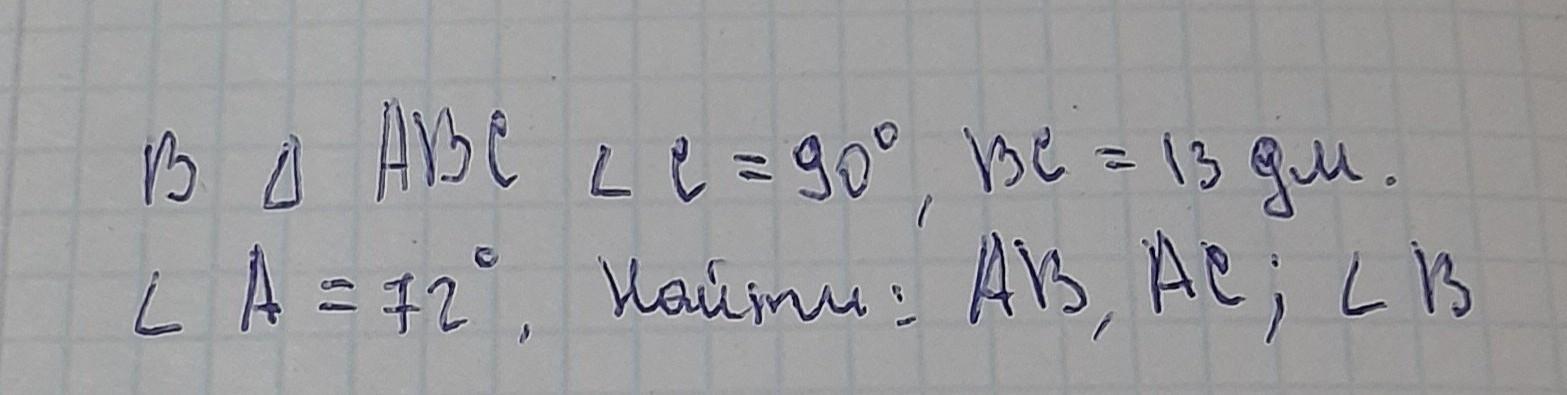 В Δ ABC ∠ C = 90°, BC = 13 дм.
∠ A = 72°, Найти: AB, AC; ∠ B